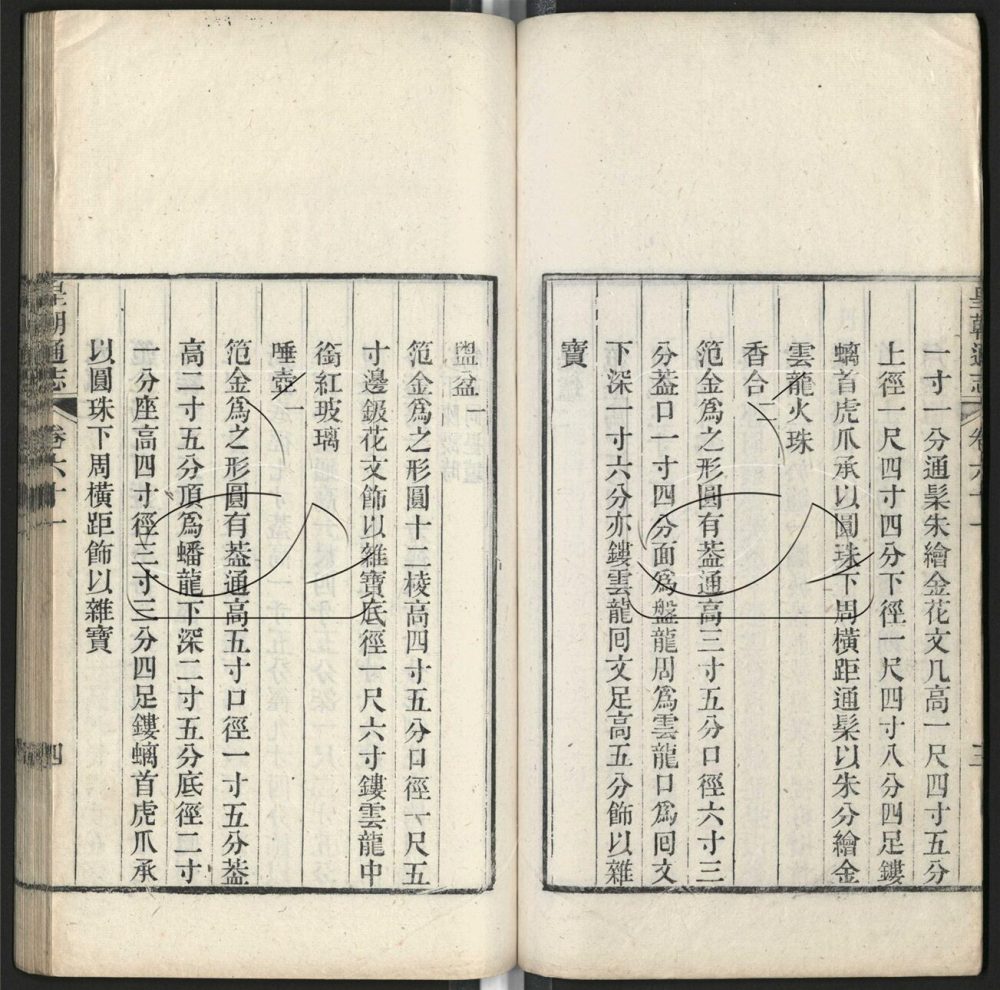 皇朝通志 卷六十一 三
一寸一分通髹朱繪金花文几高一尺四寸五分
上徑一尺四寸四分下徑一尺四寸八分四足鏤
螭首虎爪承以圓珠下周橫距通髹以朱分繪金
雲龍火珠
香合二
范金爲之形圓有葢通高三寸五分口徑六寸三
分葢口一寸四分面爲盤龍周爲雲龍口爲囘文
下深一寸六分亦鏤雲龍囘文足高五分飾以雜
寶
盥盆一
范金爲之形圓十二棱高四寸五分口徑一尺五
寸邊鈒花文飾以雜寶底徑一尺六寸鏤雲龍中
銜紅玻璃
唾壺一
范金爲之形圓有葢通高五寸口徑一寸五分葢
高二寸五分頂爲蟠龍下深二寸五分底徑二寸
一分座高四寸徑三寸三分四足鏤螭首虎爪承
以圓珠下周橫距飾以雜寶
皇朝通志 卷六十一 四